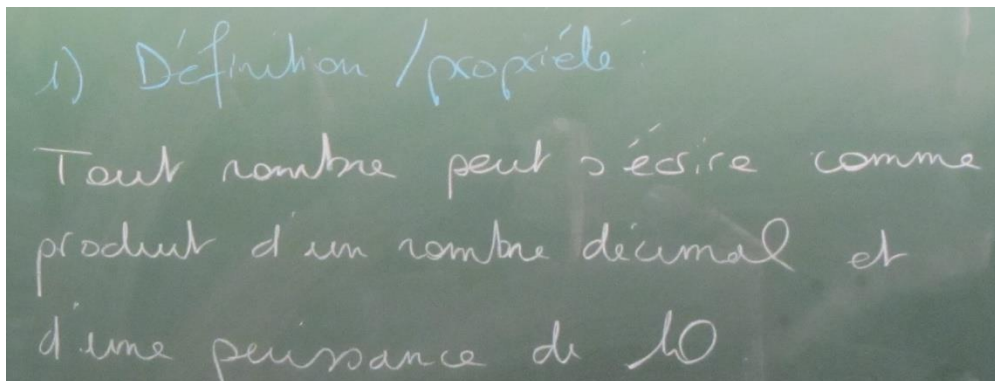 1) Définition / propriété :
Tout nombre peut s'écrire comme
produit d'un nombre décimal et
d'une puissance de 10.